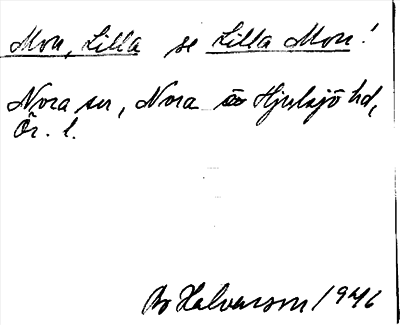 Mon, Lilla se Lilla Mon!
Nora sn, Nora o Hjulsjö hd,
Ör. l.
Bo Halvarson 1946